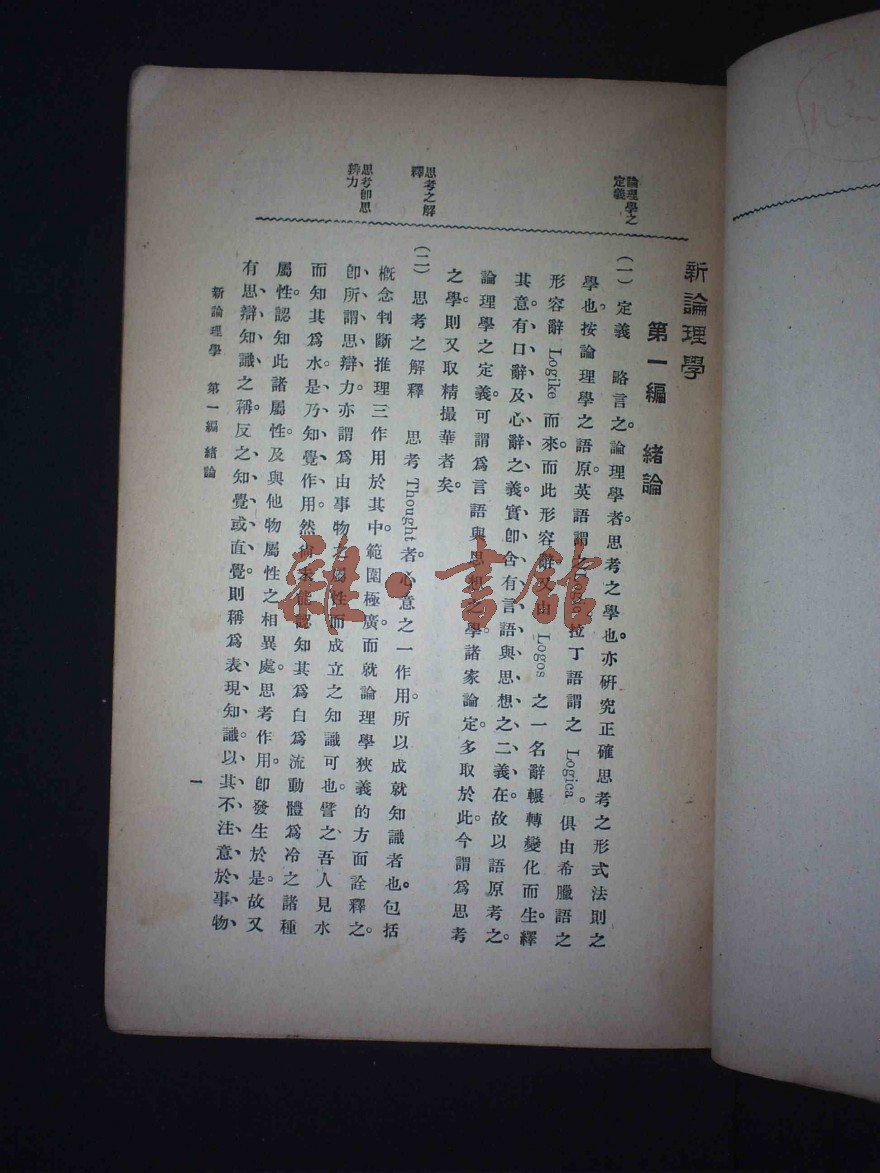 新論理學
第一編 緒論
論理學之
定義
(一) 定義 略言之。論理學者思考之學也。亦研究正確思考之形式法則之
學也。按論理學之語原。英語謂之 拉丁語謂之 Logica。俱由希臘語之
形容辭 Logike 而來。而此形容辭又由 Logos 之一名辭輾轉變化而生。繹
其意。有口辭及心辭之義。實卽含有言語與思想之二義在。故以語原考之。
論理學之定義。可謂爲言語與思想之學。諸家論定。多取於此。今謂爲思考
之學。則又取精撮華者矣。
思考之解
釋
(二) 思考之解釋 思考 Thought 者。心意之一作用。所以成就知識者也。包括
思考卽思
辨力
概念判斷推理三作用於其中。範圍極廣。而就論理學狹義的方面詮釋之。
卽所謂思辯力。亦謂爲由事物之屬性而成立之知識可也。譬之吾人見水
而知其爲水。是乃知覺作用。然尙未能認知其爲白爲流動體爲冷之諸種
屬性。認知此諸屬性。及與他物屬性之相異處。思考作用。卽發生於是。故又
有思辯知識之稱。反之知覺或直覺。則稱爲表現知識。以其不注意於事物
新論理學 第一編 緒論
一
雜·書館